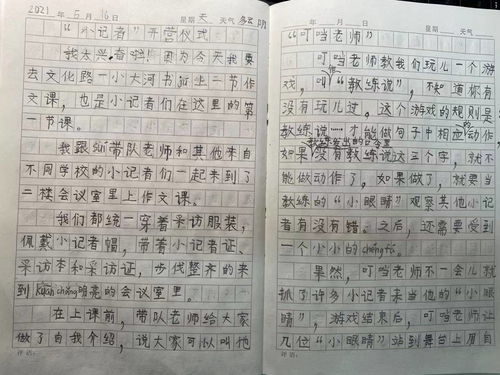 2021年5月16日 星期天 天气多云
"小记者"开营仪式
我太兴奋啦！因为今天我要
去文化路一小大河书孤上二节作
文课，也是小记者们在这里的第
一节课。
我跟sui带队老师和其他来自
不同学校的小记者们一起来到了
二楼会议室里上作文课。
我们都统一穿着采访服装，
佩戴小记者帽，带着小记者证、
采访本和采访证，步伐整齐的来
到kuān chǎng明亮的会议室里。
在上课前，带队老师给大家
做了自我介绍，说大家可以叫他
评语：
年 月 日 星期 天气
"叮当老师"
叮当老师教我们玩儿一个游
戏，叫"教练说"，不知道你有
没有玩儿过。这个游戏的规则是
教练说……才能做句子中相应动作，
如果教练发出的口令里没有教练说这三个字，就不
能做动作了。如果做了，就要当
教练的"小眼睛"观察其他小记
者有没有错。之后，还需要受到
一个小小的chéng fá。
果然，叮当老师不一会儿就
抓了许多小记者来当他的"小眼
睛"，游戏结束后，叮当老师让
几位"小眼睛"站到舞台上眉自
评语：